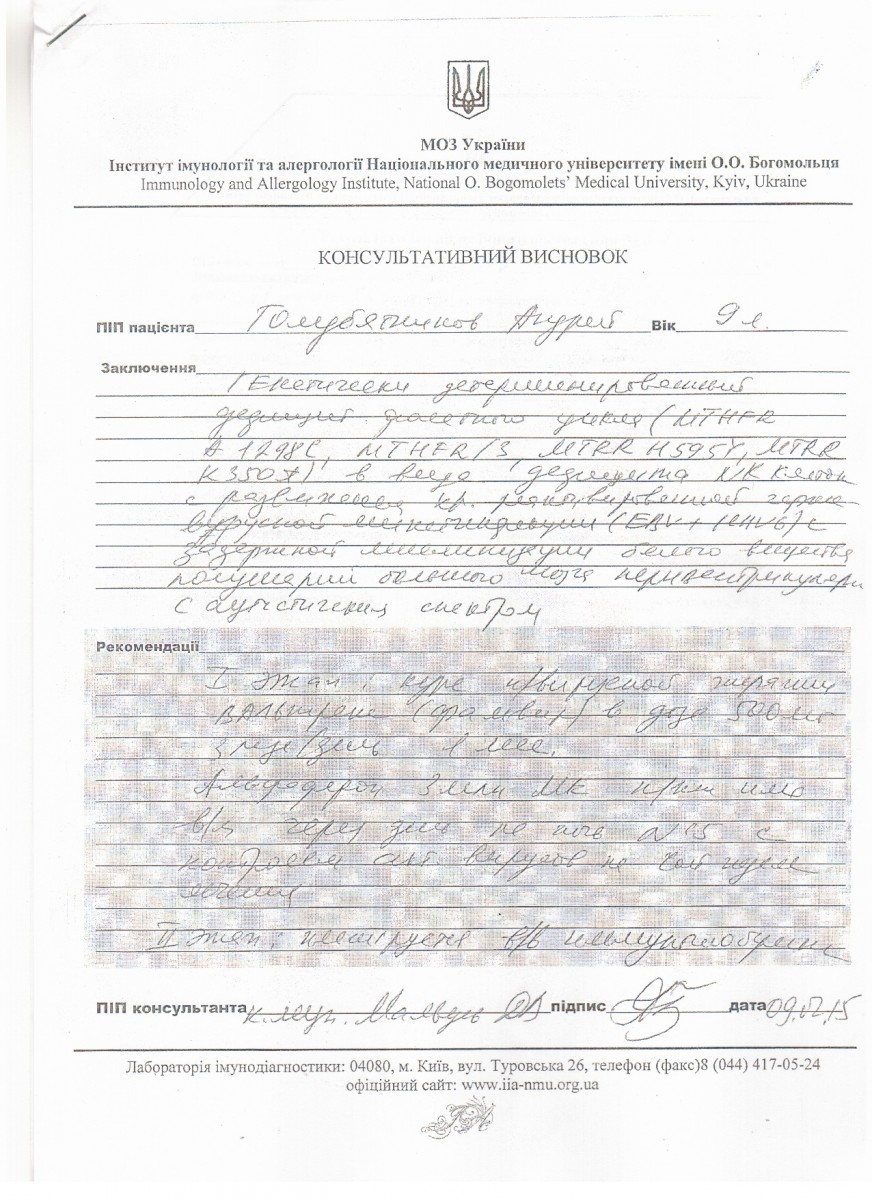 МОЗ України
Інститут імунології та алергології Національного медичного університету імені О.О. Богомольця
Immunology and Allergology Institute, National O. Bogomolets’ Medical University, Kyiv, Ukraine
КОНСУЛЬТАТИВНИЙ ВИСНОВОК
ПІП пацієнта Голубятников Андрей Вік 9 л.
Заключення
Генетически детерминированный
дефицит фолатного цикла (MTHFR
A1298C, MTHFR/3, MTRR H595Y, MTRR
K350A) в виде дефицита клеток
с развитием хр. реактивированной герпес
вирусной микстинфекции (EBV + HHV6) с
задержкой миелинизации белого вещества
полушарий большого мозга перивентрикулярн
с аутистическим спектром
Рекомендації
I этап: курс п/вирусной терапии
(фамвир) в дозе 500 мг
3 раза/день
Альфаферон 3 млн
в/м через день на ночь N 15 с
контролем акт. вирусов на
лечения
II этап: в/в иммуноглобулина
ПІП консультанта к.м.н. Мальцев ДВ підпис дата 09.02.15
Лабораторія імунодіагностики: 04080, м. Київ, вул. Туровська 26, телефон (факс)8 (044) 417-05-24
офіційний сайт: www.iia-nmu.org.ua